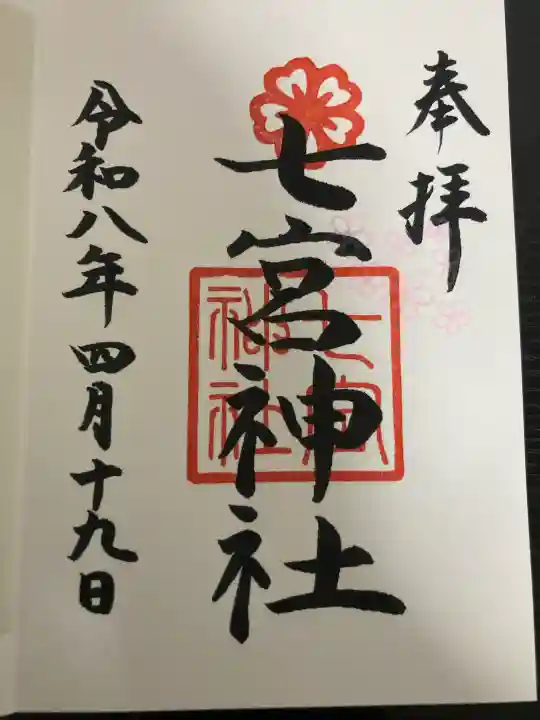 奉拝
七宮神社
七宮神社
令和八年四月十九日